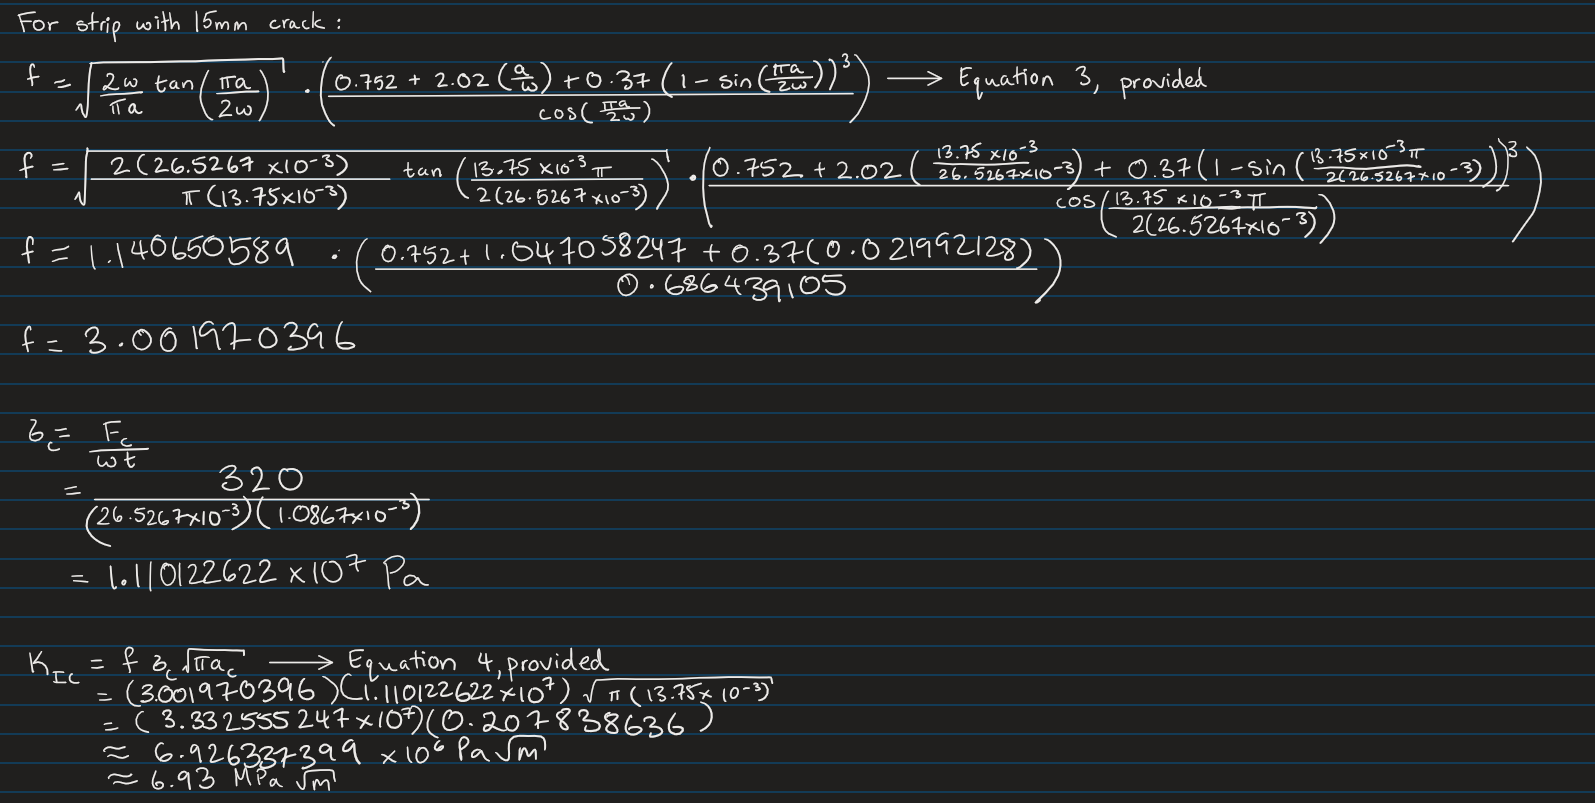 For strip with 15mm crack :
f = √(2w/πa tan(πa/2w)) · ((0.752 + 2.02(a/w) + 0.37(1 - sin(πa/2w))³)/cos(πa/2w)) ⟶ Equation 3, provided
f = √(2(26.5267 ×10⁻³)/π(13.75×10⁻³) tan(13.75 ×10⁻³ π/2(26.5267 ×10⁻³))) · ((0.752 + 2.02(13.75 ×10⁻³/26.5267×10⁻³) + 0.37(1 - sin(13.75×10⁻³ π/2(26.5267×10⁻³)))³)/cos(13.75 ×10⁻³ π/2(26.5267×10⁻³)))
f = 1.140650589 · ((0.752 + 1.047058247 + 0.37(0.021992128))/0.686439105)
f = 3.001970396
σ_c = F_c/wt
= 320/(26.5267×10⁻³)(1.0867×10⁻³)
= 1.110122622 ×10⁷ Pa
K_Ic = f σ_c √(πa_c) ⟶ Equation 4, provided
= (3.001970396)(1.110122622×10⁷) √(π(13.75×10⁻³))
= (3.332555247×10⁷)(0.207838636)
≈ 6.926337399 ×10⁶ Pa√m
≈ 6.93 MPa √m